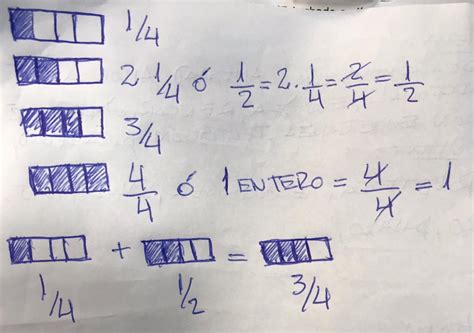 1/4
2 1/4 ó 1/2 = 2 · 1/4 = 2/4 = 1/2
3/4
4/4 ó 1 ENTERO = 4/4 = 1
+ =
1/4 1/2 3/4